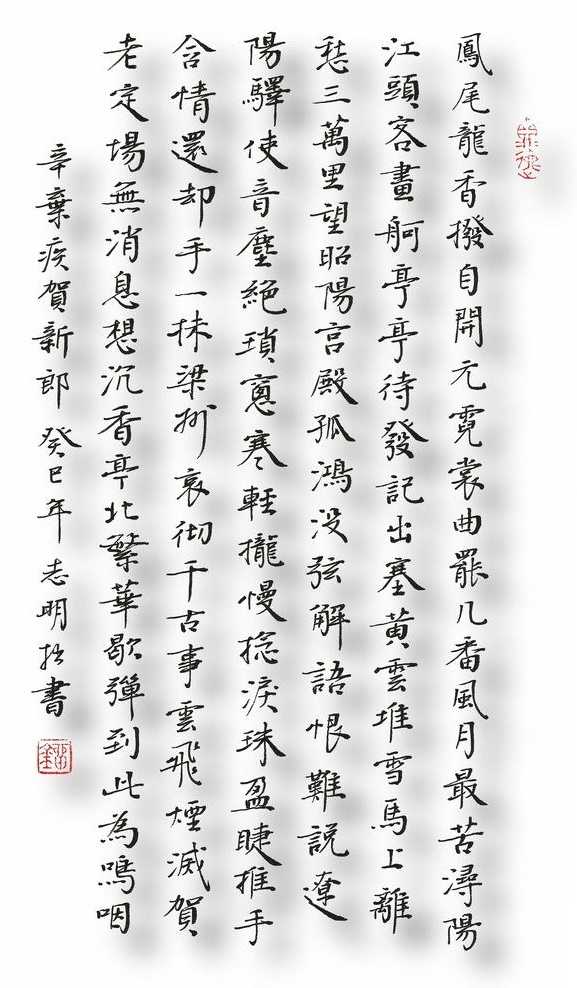 鳳尾龍香撥自開元霓裳曲罷几番風月最苦潯陽
江頭客畫舸亭亭待發記出塞黃雲堆雪馬上離
愁三萬里望昭陽宮殿孤鴻没弦解語恨難説遼
陽驛使音塵絕瑣窻寒輕攏慢捻淚珠盈睫推手
含情還却手一抹梁州哀彻千古事雲飛煙滅賀
老定場無消息想沉香亭北繁華歇彈到此為嗚咽
辛棄疾賀新郎癸巳年志明拙書